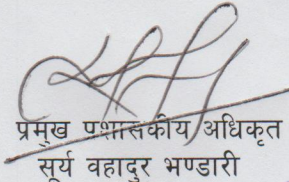 प्रमुख प्रशासकीय अधिकृत
सूर्य वहादुर भण्डारी